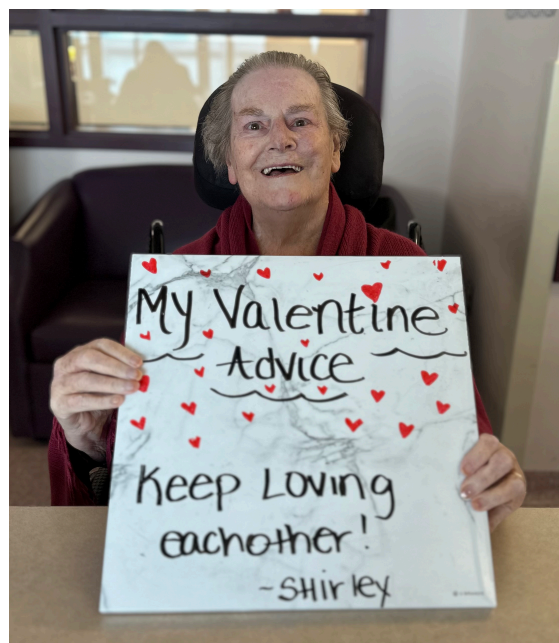 My Valentine
Advice
Keep Loving
eachother!
~SHirley